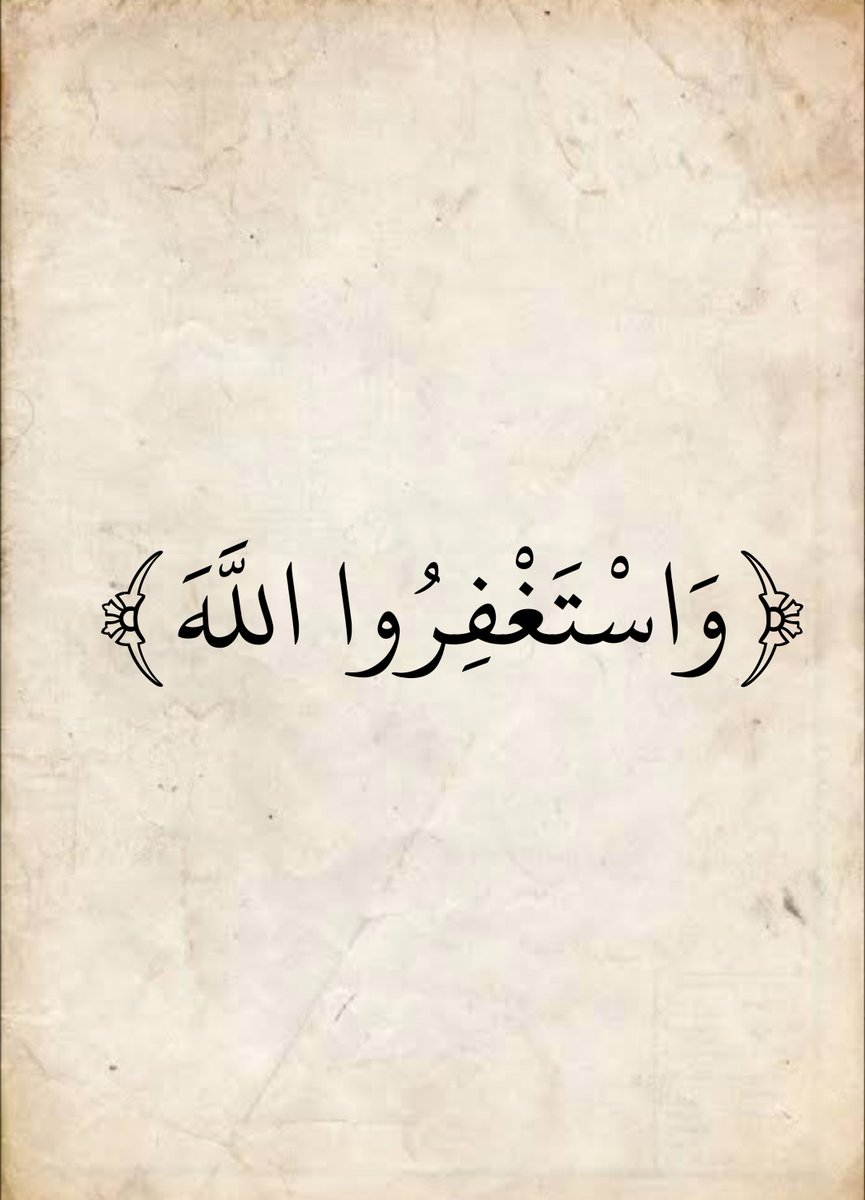 ﴿وَاسْتَغْفِرُوا اللَّهَ﴾